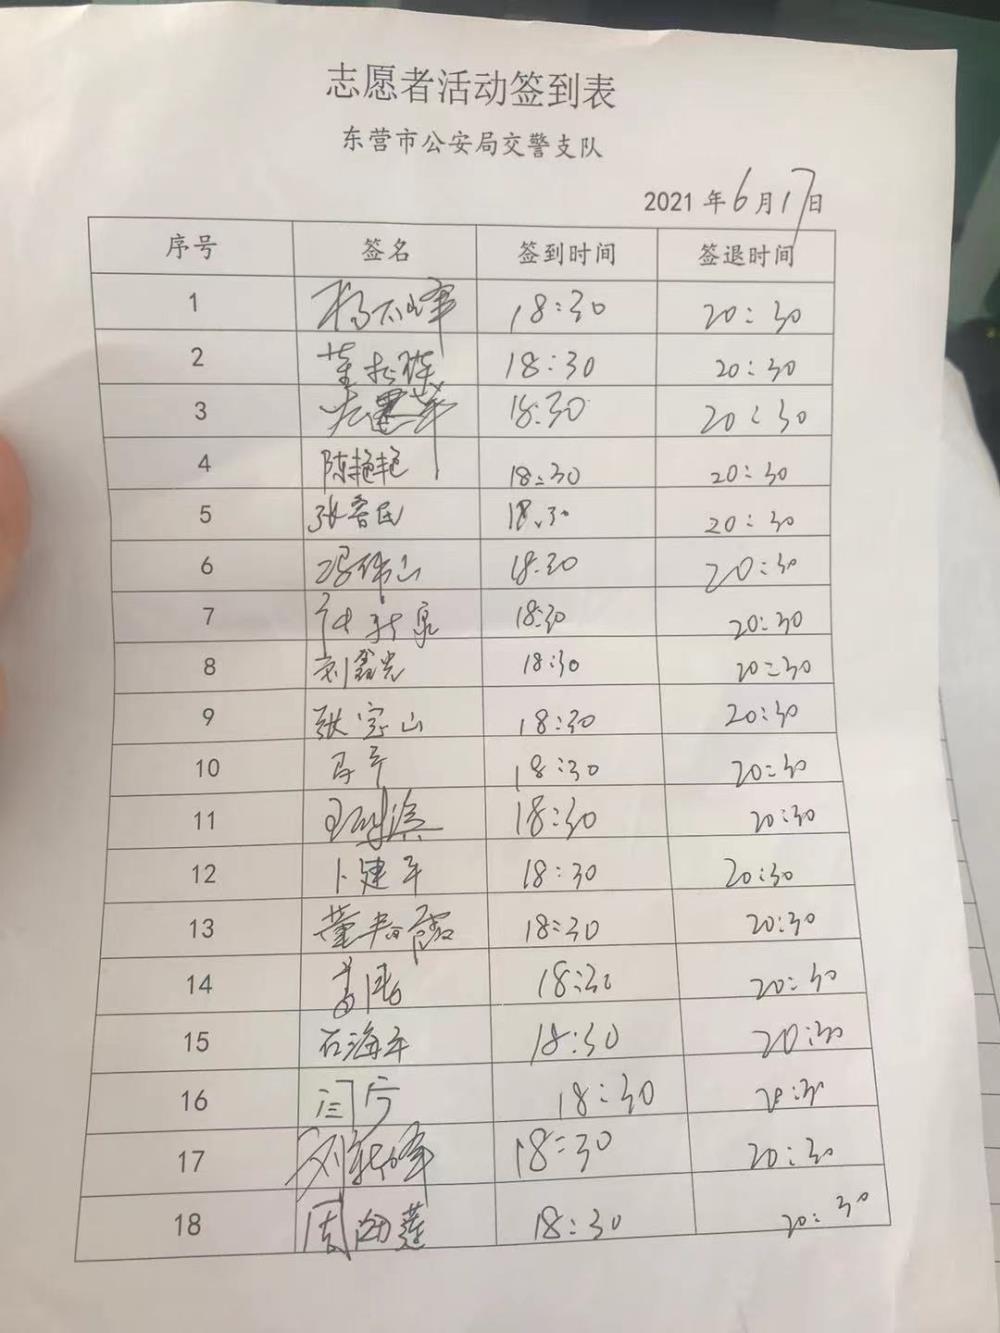 志愿者活动签到表
东营市公安局交警支队
2021年6月17日
序号 签名 签到时间 签退时间
1 18:30 20:30
2 18:30 20:30
3 18:30 20:30
4 陈艳艳 18:30 20:30
5 张鲁民 18:30 20:30
6 冯伟山 18:30 20:30
7 18:30 20:30
8 刘鑫光 18:30 20:30
9 张宝山 18:30 20:30
10 18:30 20:30
11 18:30 20:30
12 卜建军 18:30 20:30
13 董 18:30 20:30
14 18:30 20:30
15 石海军 18:30 20:30
16 18:30 20:30
17 18:30 20:30
18 周 莲 18:30 20:30